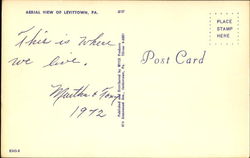 AERIAL VIEW OF LEVITTOWN, PA.
This is where
we live.
Martha & Tony
1972
Post Card
PLACE
STAMP
HERE